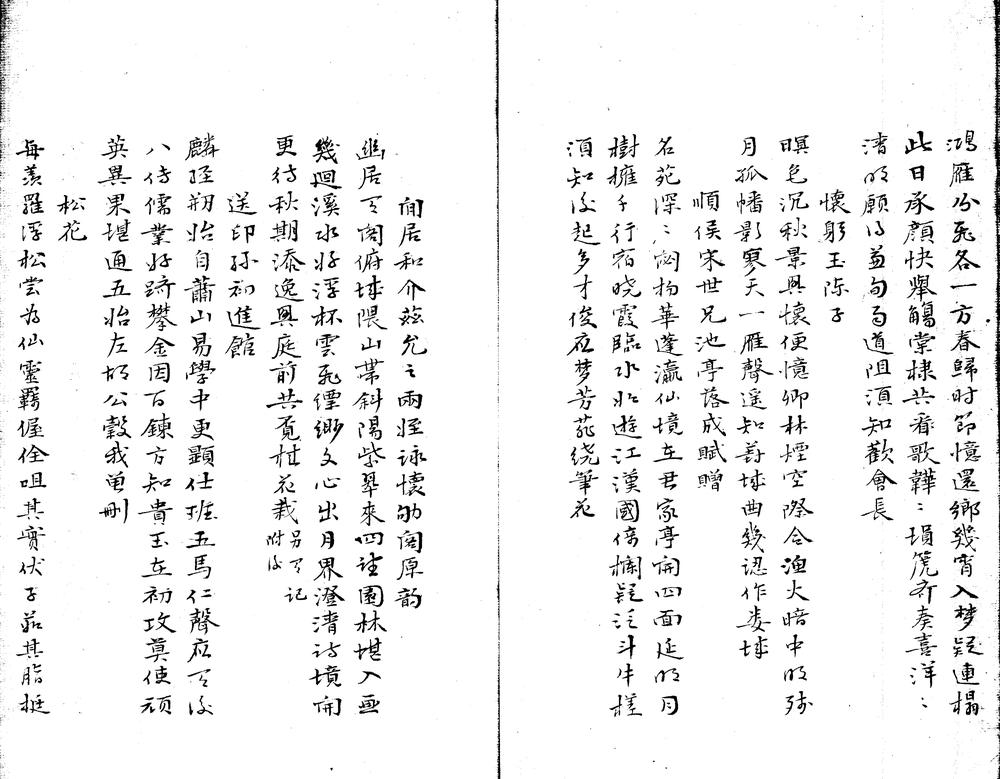 鴻雁分飛各一方春歸时節憶還鄉幾宵入梦疑連榻
此日承顏快舉觴棠棣共看歌韡〻塤篪齐奏喜洋〻
酒阑願得並句道阻須知歡會長
懷躬玉陈子
暝色沉秋景興懷便憶卿林煙空際合渔火暗中明殘
月孤幡影寒天一雁聲遥知蓉城曲幾認作娄城
順侯宋世兄池亭落成賦贈
名苑深〻閟物華蓬瀛仙境在君家亭開四面延明月
樹擁千行宿晓霞臨水如遊江漢國倚栏疑泛斗牛槎
須知後起多才俊應梦芳菲绕筆花
閒居和介兹允之兩姪詠懷砌閣原韵
幽居有閣俯城隈山帶斜陽紫翠來四望園林堪入画
幾迴溪水好浮杯雲飛缥缈文心出月界澄清诗境開
更待秋期添逸興庭前共覓桂花栽 另有記附後
送印孫初進館
麟經剏始自蕭山易學中更顯仕班五馬仁聲應有後
八传儒業好跻攀金因百鍊方知貴玉在初攻莫使顽
英異果堪通五始左胡公穀我曾删
松花
每羡羅浮松嘗为仙靈羁偓佺咀其實伏子茹其脂挺